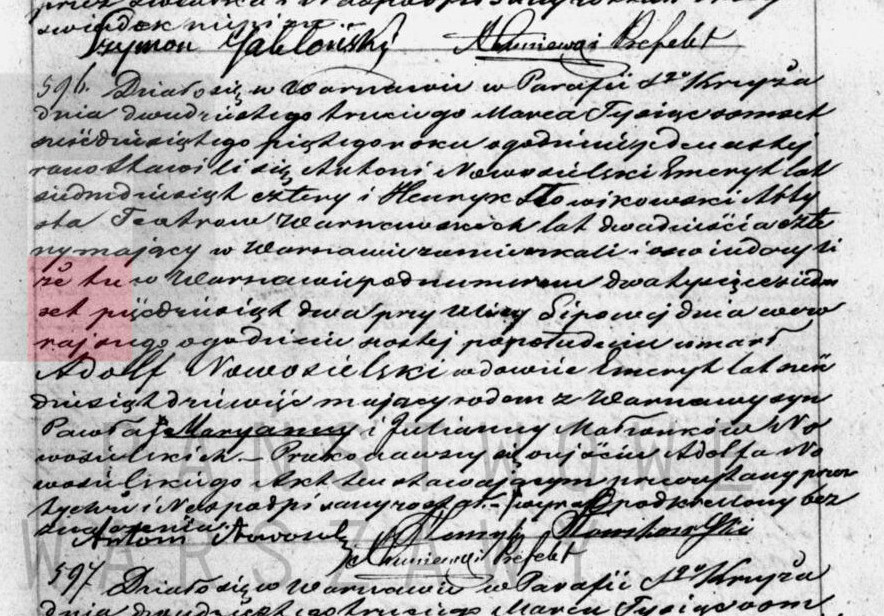 świadek
Szymon Jabłoński Prefekt
596. Działo się w Warnawie w Parafii Sgo Krzyża
dnia dwudziestego trzeciego Marca Tysiąc osmset
sześćdziesiątego piątego roku o godzinie jedenastej
rano stawili się Antoni Nowosielski Emeryt lat
siedmdziesiąt cztery i Henryk Słowikowski Arty
sta Teatrow Warszawskich lat dwadzieścia czte
ry mający w Warszawie zamieszkali i oswiadczyli
że tu w Warszawie pod numerem dwa tysiące siedm
set pięćdziesiąt dwa przy Ulicy Lipowej dnia wczo
rajszego o godzinie szostej popołudniu umarł
Adolf Nowosielski wdowiec Emeryt lat sześ
dziesiąt dziewięć mający rodem z Warszawy syn
Pawła Maryanny i Julianny Małżonków No
wosielskich. – Przekonawszy się o zejściu Adolfa No
wosielskiego Akt ten stawającym przeczytany przez
tychże i Nas podpisany został. – wyraz podkreślony bez
znaczenia.
Antoni Nowosiel Henryk Słowikowski
Prefekt
PAŃSTWOWE
WARSZAWY
597 Działo się w Warszawie w Parafii Sgo Krzyża
dnia dwudziestego trzeciego Marca Tysiąc osm